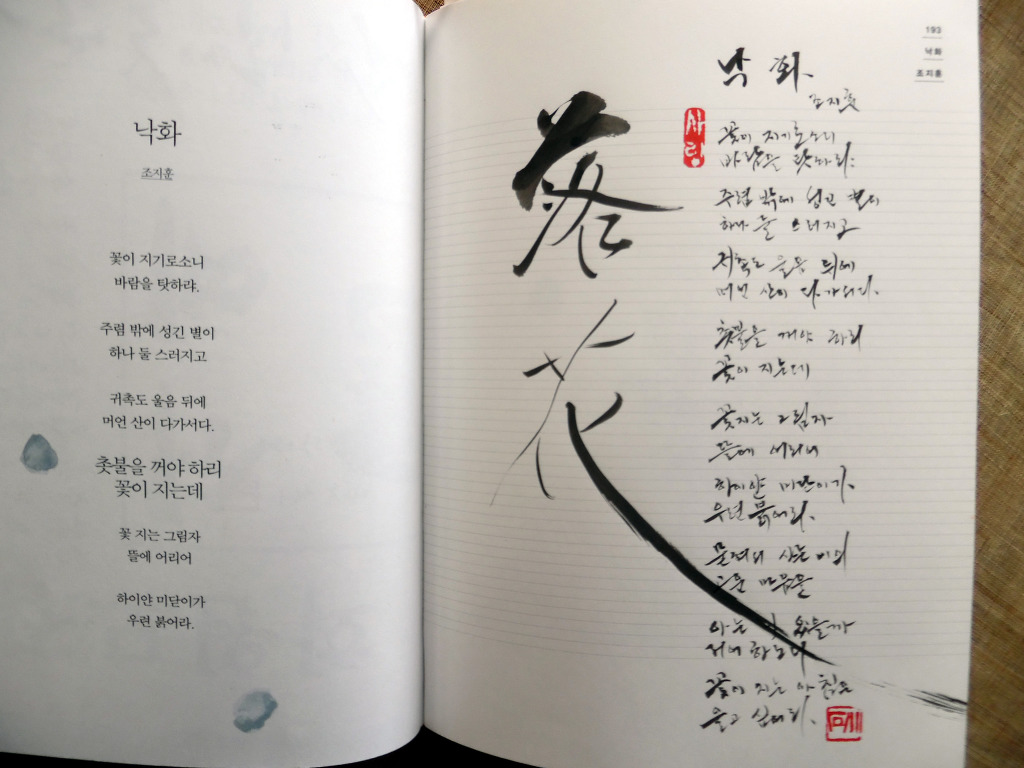 낙화
조지훈
꽃이 지기로소니
바람을 탓하랴.
주렴 밖에 성긴 별이
하나 둘 스러지고
귀촉도 울음 뒤에
머언 산이 다가서다.
촛불을 꺼야 하리
꽃이 지는데
꽃 지는 그림자
뜰에 어리어
하이얀 미닫이가
우련 붉어라.
落花
사랑
193
낙화
조지훈
낙화.
조지훈
꽃이 지기로소니
바람을 탓하랴.
주렴 밖에 성긴 별이
하나 둘 스러지고
귀촉도 울음 뒤에
머언 산이 다가서다.
촛불을 꺼야 하리
꽃이 지는데
꽃지는 그림자
뜰에 어리어
하이얀 미닫이가.
우련 붉어라.
묻혀서 사는 이의
고운 마음을
아는 이 있을까
저어하노니
꽃이 지는 아침은
울고 싶어라.